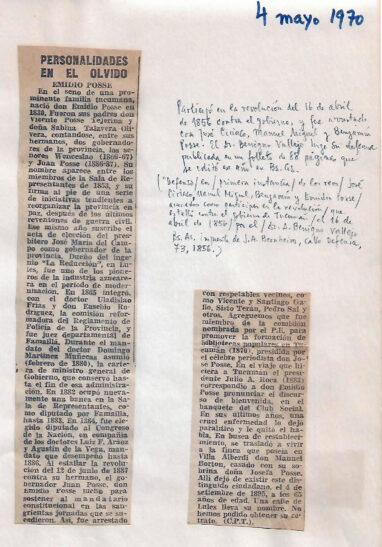 4 mayo 1970
PERSONALIDADES
EN EL OLVIDO
EMIDIO POSSE
En el seno de una pro-
minente familia tucumana,
nació don Emidio Posse en
1830. Fueron sus padres don
Vicente Posse Tejerina y
doña Sabina Talavera Oli-
vera, contándose, entre sus
hermanos, dos gobernado-
res de la provincia, los se-
ñores Wenceslao (1866-67)
y Juan Posse (1886-87). Su
nombre aparece entre los
miembros de la Sala de Re-
presentantes de 1853, y su
firma al pie de una serie
de iniciativas tendientes a
reorganizar la provincia en
paz, después de los últimos
reventones de guerra civil.
Ese mismo año suscribe el
acta de elección del pres-
bítero José María del Cam-
po como gobernador de la
provincia. Dueño del inge-
nio "La Reducción", en Lu-
les, fue uno de los pione-
ros de la industria azucare-
ra en el período de moder-
nización. En 1865 integró,
con el doctor Uladislao
Frías y don Eusebio Ro-
dríguez, la comisión refor-
madora del Reglamento de
Policía de la Provincia, y
fue juez departamental de
Famaillá. Durante el man-
dato del doctor Domingo
Martínez Muñecas asumió
(febrero de 1880), la carte-
ra de ministro general de
Gobierno, que conservó has-
ta el fin de esa administra-
ción. En 1882 ocupó nueva-
mente una banca en la Sa-
la de Representantes, co-
mo diputado por Famaillá,
hasta 1883. En 1884, fue ele-
gido diputado al Congreso
de la Nación, en compañía
de los doctores Luis F. Aráoz
y Agustín de la Vega, man-
dato que desempeñó hasta
1886. Al estallar la revolu-
ción del 12 de junio de 1887
contra su hermano, el go-
bernador Juan Posse, don
Emidio Posse luchó para
sostener al mandatario
constitucional en las san-
grientas jornadas que se su-
cedieron. Así, fue arrestado
Participó en la revolución del 16 de abril
de 1856 contra el gobierno, y fue arrestado
con José Ciriaco, Manuel Miguel y Benjamín
Posse. El Dr. Benigno Vallejo hizo su defensa
publicada en un folleto de 88 páginas que
se editó ese año en Bs. As.
("Defensa/ en/ primera instancia/ de los reos/ José
Ciriaco, Manuel Miguel, Benjamín y Emidio Posse/
acusados como partícipes en la revolución/ que
estalló contra el gobierno de Tucumán/ el 16 de
abril de 1856/ por el/ Dr. D. Benigno Vallejo
Bs. As., imprenta de J.A. Bernheim, calle Defensa,
73, 1856.)
con respetables vecinos, co-
mo Vicente y Santiago Ga-
llo, Sixto Terán, Pedro Sal y
otros. Agreguemos que fue
miembro de la comisión
nombrada por el P.E. para
promover la formación de
bibliotecas populares en Tu-
cumán (1870), presidida por
el célebre periodista don Jo-
sé Posse. En el viaje que hi-
ciera a Tucumán el presi-
dente Julio A. Roca (1883)
correspondió a don Emidio
Posse pronunciar el discur-
so de bienvenida, en el
banquete del Club Social.
En sus últimos años, una
cruel enfermedad lo dejó
paralítico y le quitó el ha-
bla. En busca de restableci-
miento, se trasladó a vivir
a la finca que poseía en
Villa Alberdi don Manuel
Borton, casado con su so-
brina doña Josefa Posse.
Allí dejó de existir este dis-
tinguido ciudadano, el 4 de
setiembre de 1895, a los 65
años de edad. Una calle de
Lules lleva su nombre. No
hemos podido obtener su re-
trato. (C.P.T.).